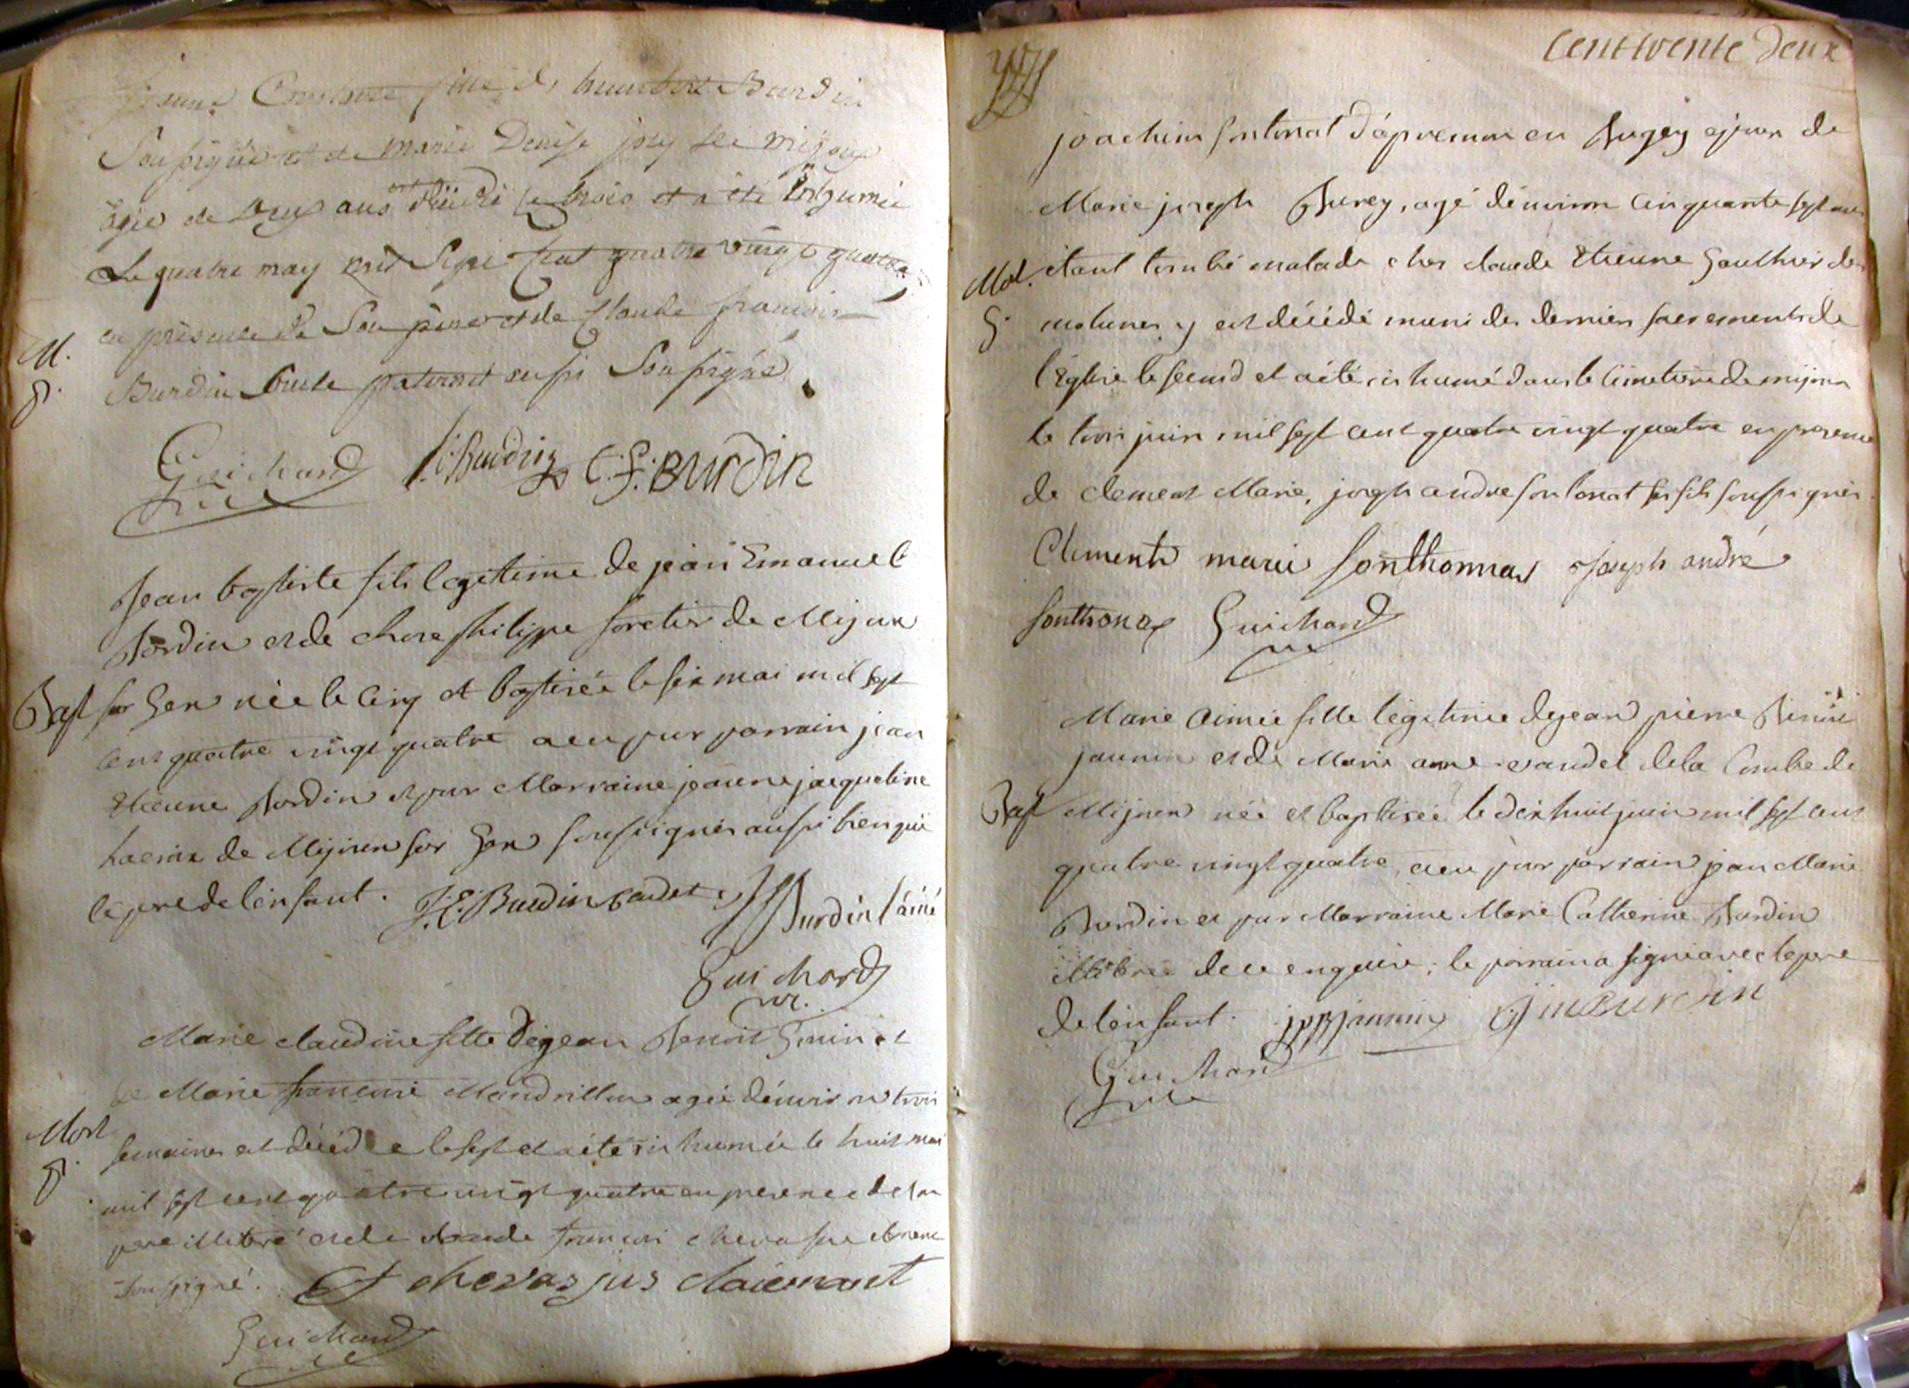 Jeanne Constance fille de humbert Burdin
Soussigné et de marie Denise joly de mijoux
agée de deux ans est décédé le trois et a été Inhumée
Le quatre may mil Sept Cent quatre vingt quatre
en présence de Son père et de Claude françois
M.
Burdin Oncle paternel aussi Soussigné
g.
Guichard h. Burdin C. f. Burdin
vic
Jean baptiste fils legitime de jean Emanuel
Burdin et de chere philippe foretier de Mijoux
Bapt sur Gex née le cinq et baptisée le six mai mil sept
cent quatre vingt quatre a eu pour parrain jean
Etienne Burdin et pour Marraine jeanne jacqueline
de Mijoux sur Gex soussignés aussi bien que
le pere de lenfant. J. E. Burdin cadet J Burdin l'ainé
Guichard
vic.
Marie claudine fille de jean Benoit Grinin et
de Marie francoise Mandrillon agée d'environ trois
Mort
semaines est décédée le sept et a été inhumée le huit mai
g.
mil sept cent quatre vingt quatre en presence de son
pere illitéré et de claude francois chevassu
soussigné. Cf chevassus claiemant
Guichard
vic
Cent trente deux
joachim sontonat d'apremon en Bugey epoux de
Marie joseph Burey, agé d'environ cinquante sept ans
Mort.
étant tombé malade chez claude Etienne Gauthier des
g.
molunes y est décédé muni des derniers sacrements de
l'Eglise le second et a été inhumé dans le cimetiere de mijoux
le trois juin mil sept cent quatre vingt quatre en presence
de clement Marie, joseph andre sontonat ses fils soussignés.
Clement marie sonthonnax joseph andré
sonthonax Guichard
vic
Marie aimée fille legitime de jean pierre Benoit
jannin et de Marie anne vaudel de la Combe de
Bapt Mijoux née et baptisée le dix huit juin mil sept cent
quatre vingt quatre, a eu pour parrain jean Marie
Burdin et pour Marraine Marie Catherine Burdin
illitérée de ce enquise; le parrain a signé avec le pere
de lenfant. jppjannin j m Burdin
Guichard
vic